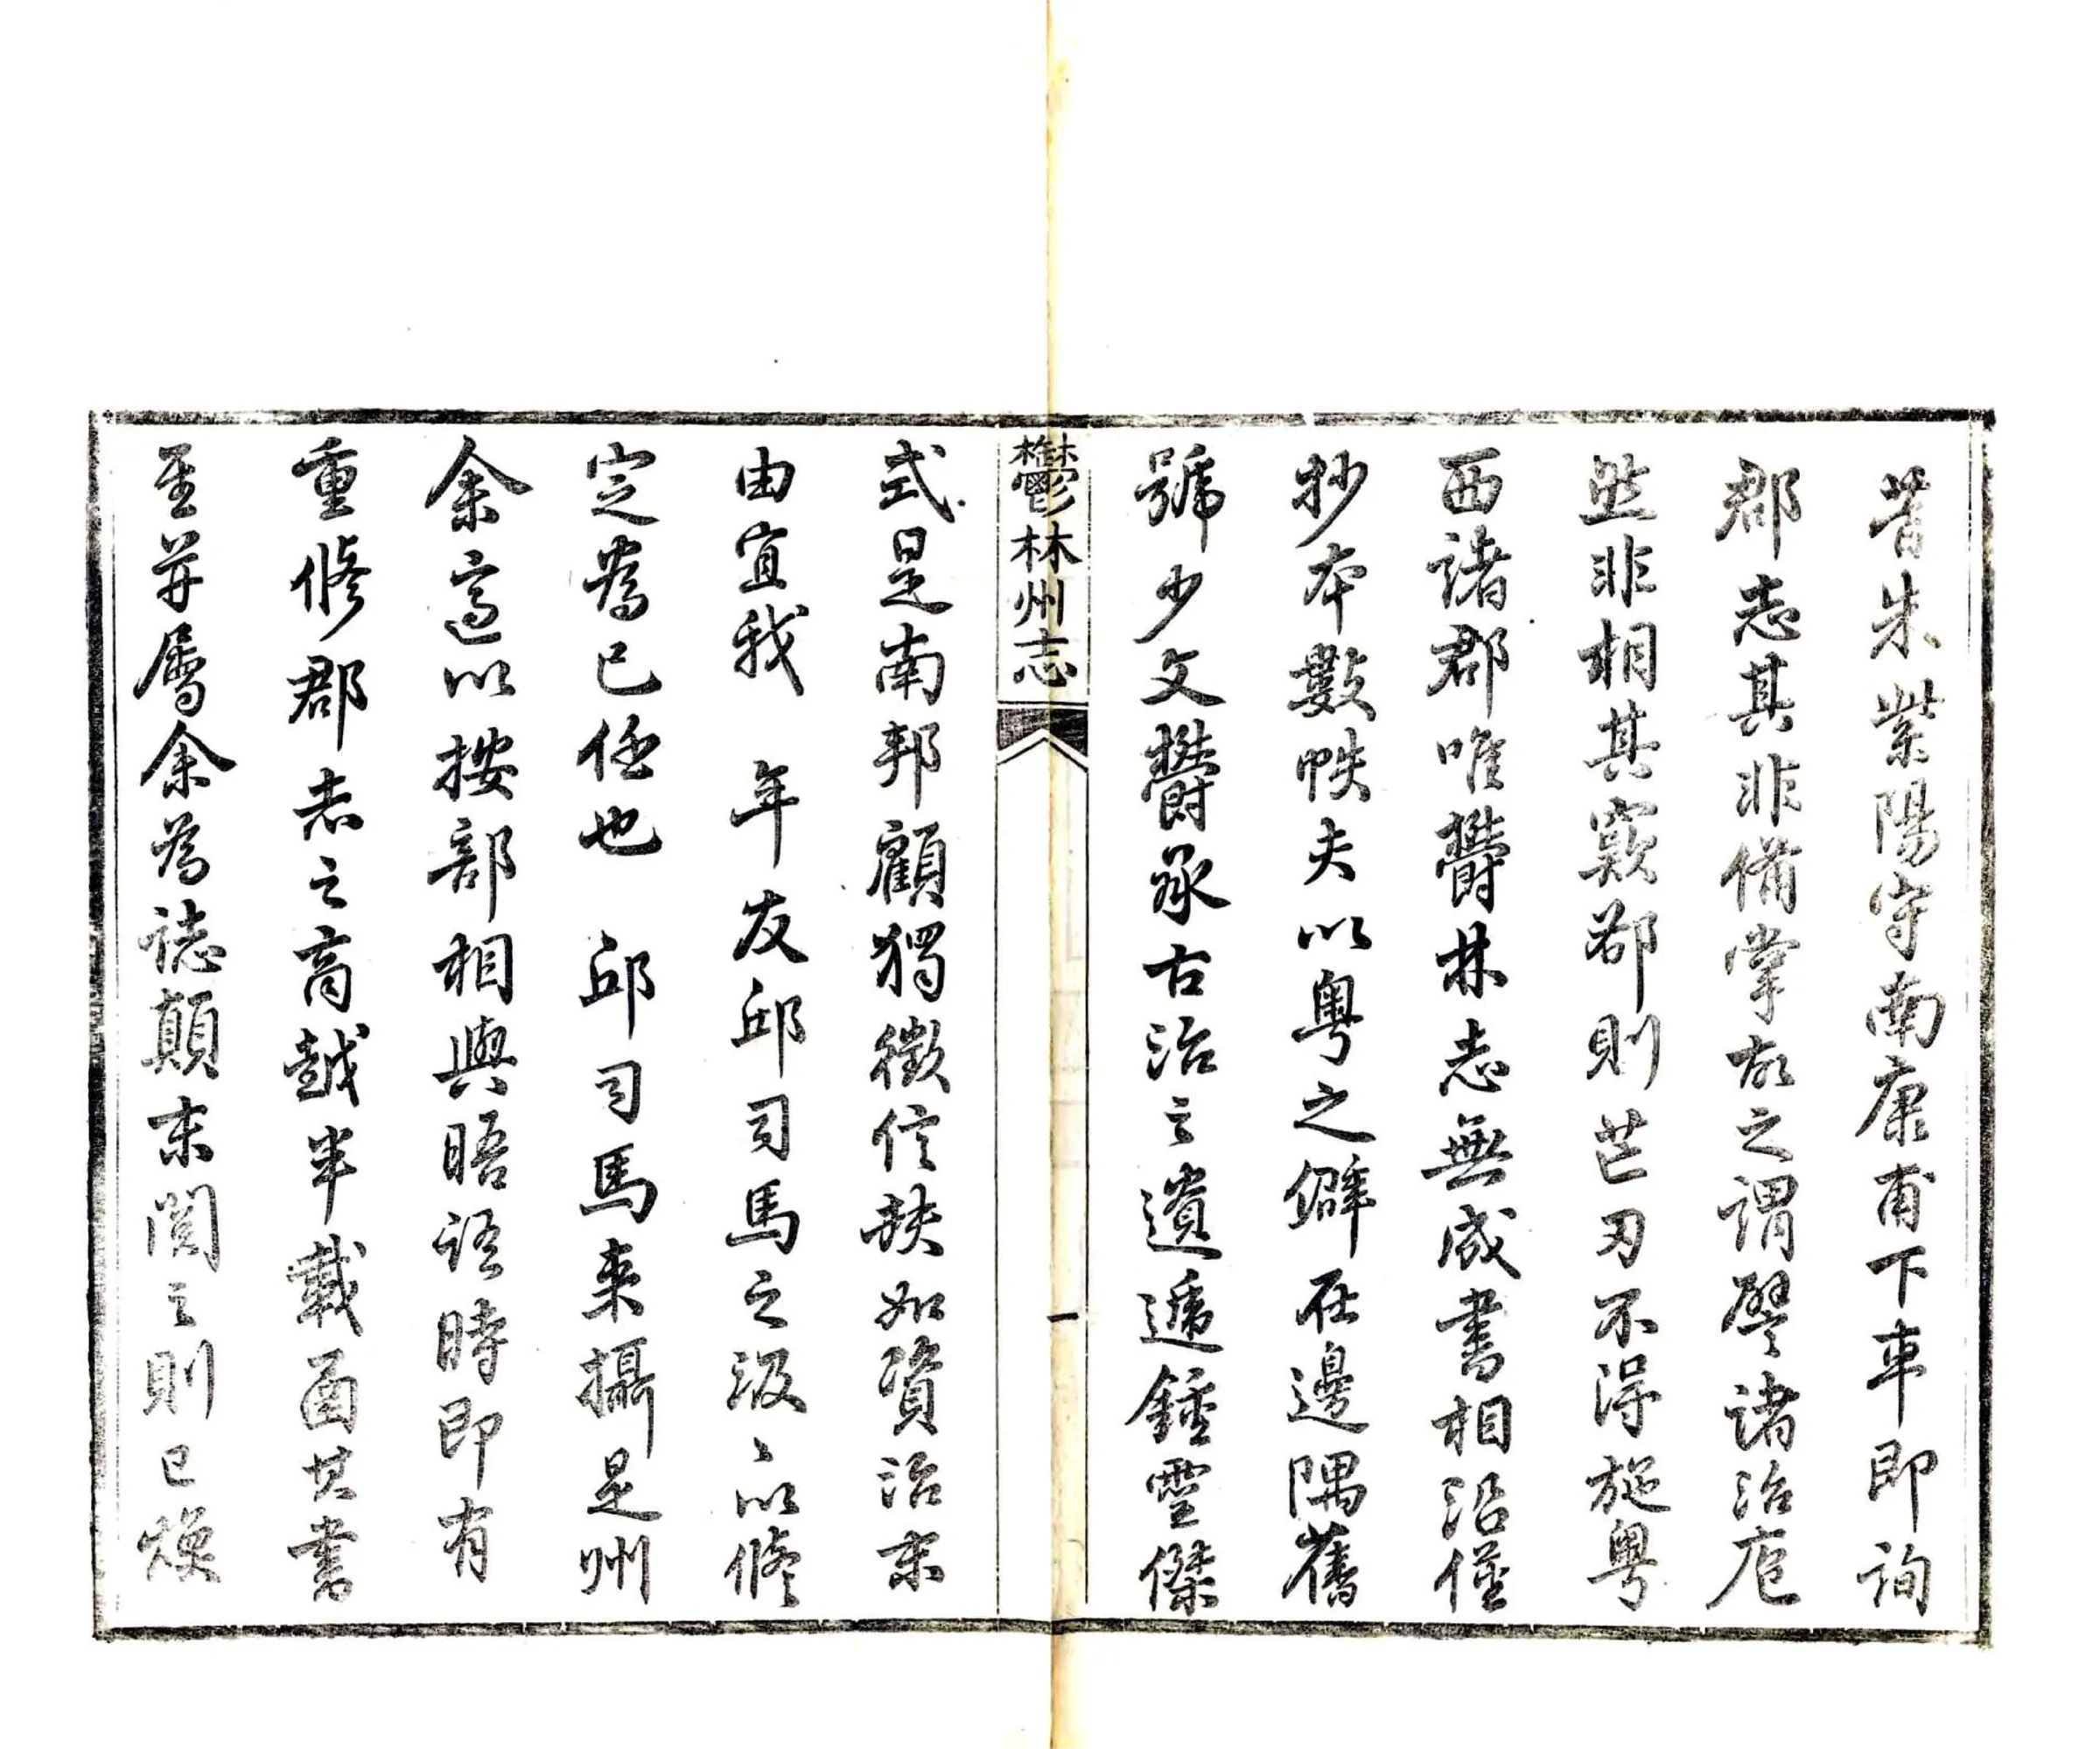 昔朱紫陽守南康甫下車即詢
郡志其非備掌故之謂譬諸治庖
然非相其窾郤則芒刃不得施粵
西諸郡唯欝林志無成書相沿僅
抄本數帙夫以粵之僻在邊隅舊
號少文欝承古治之遺遞鍾靈傑
鬱林州志
一
式是南邦顧獨徵信缺如資治末
由宜我　年友邱司馬之汲〻以修
定為己任也　邱司馬来攝是州
余適以按部相與晤語時即有
重修郡志之商越半載函其書
至并屬余為誌顛末閱之則已煥